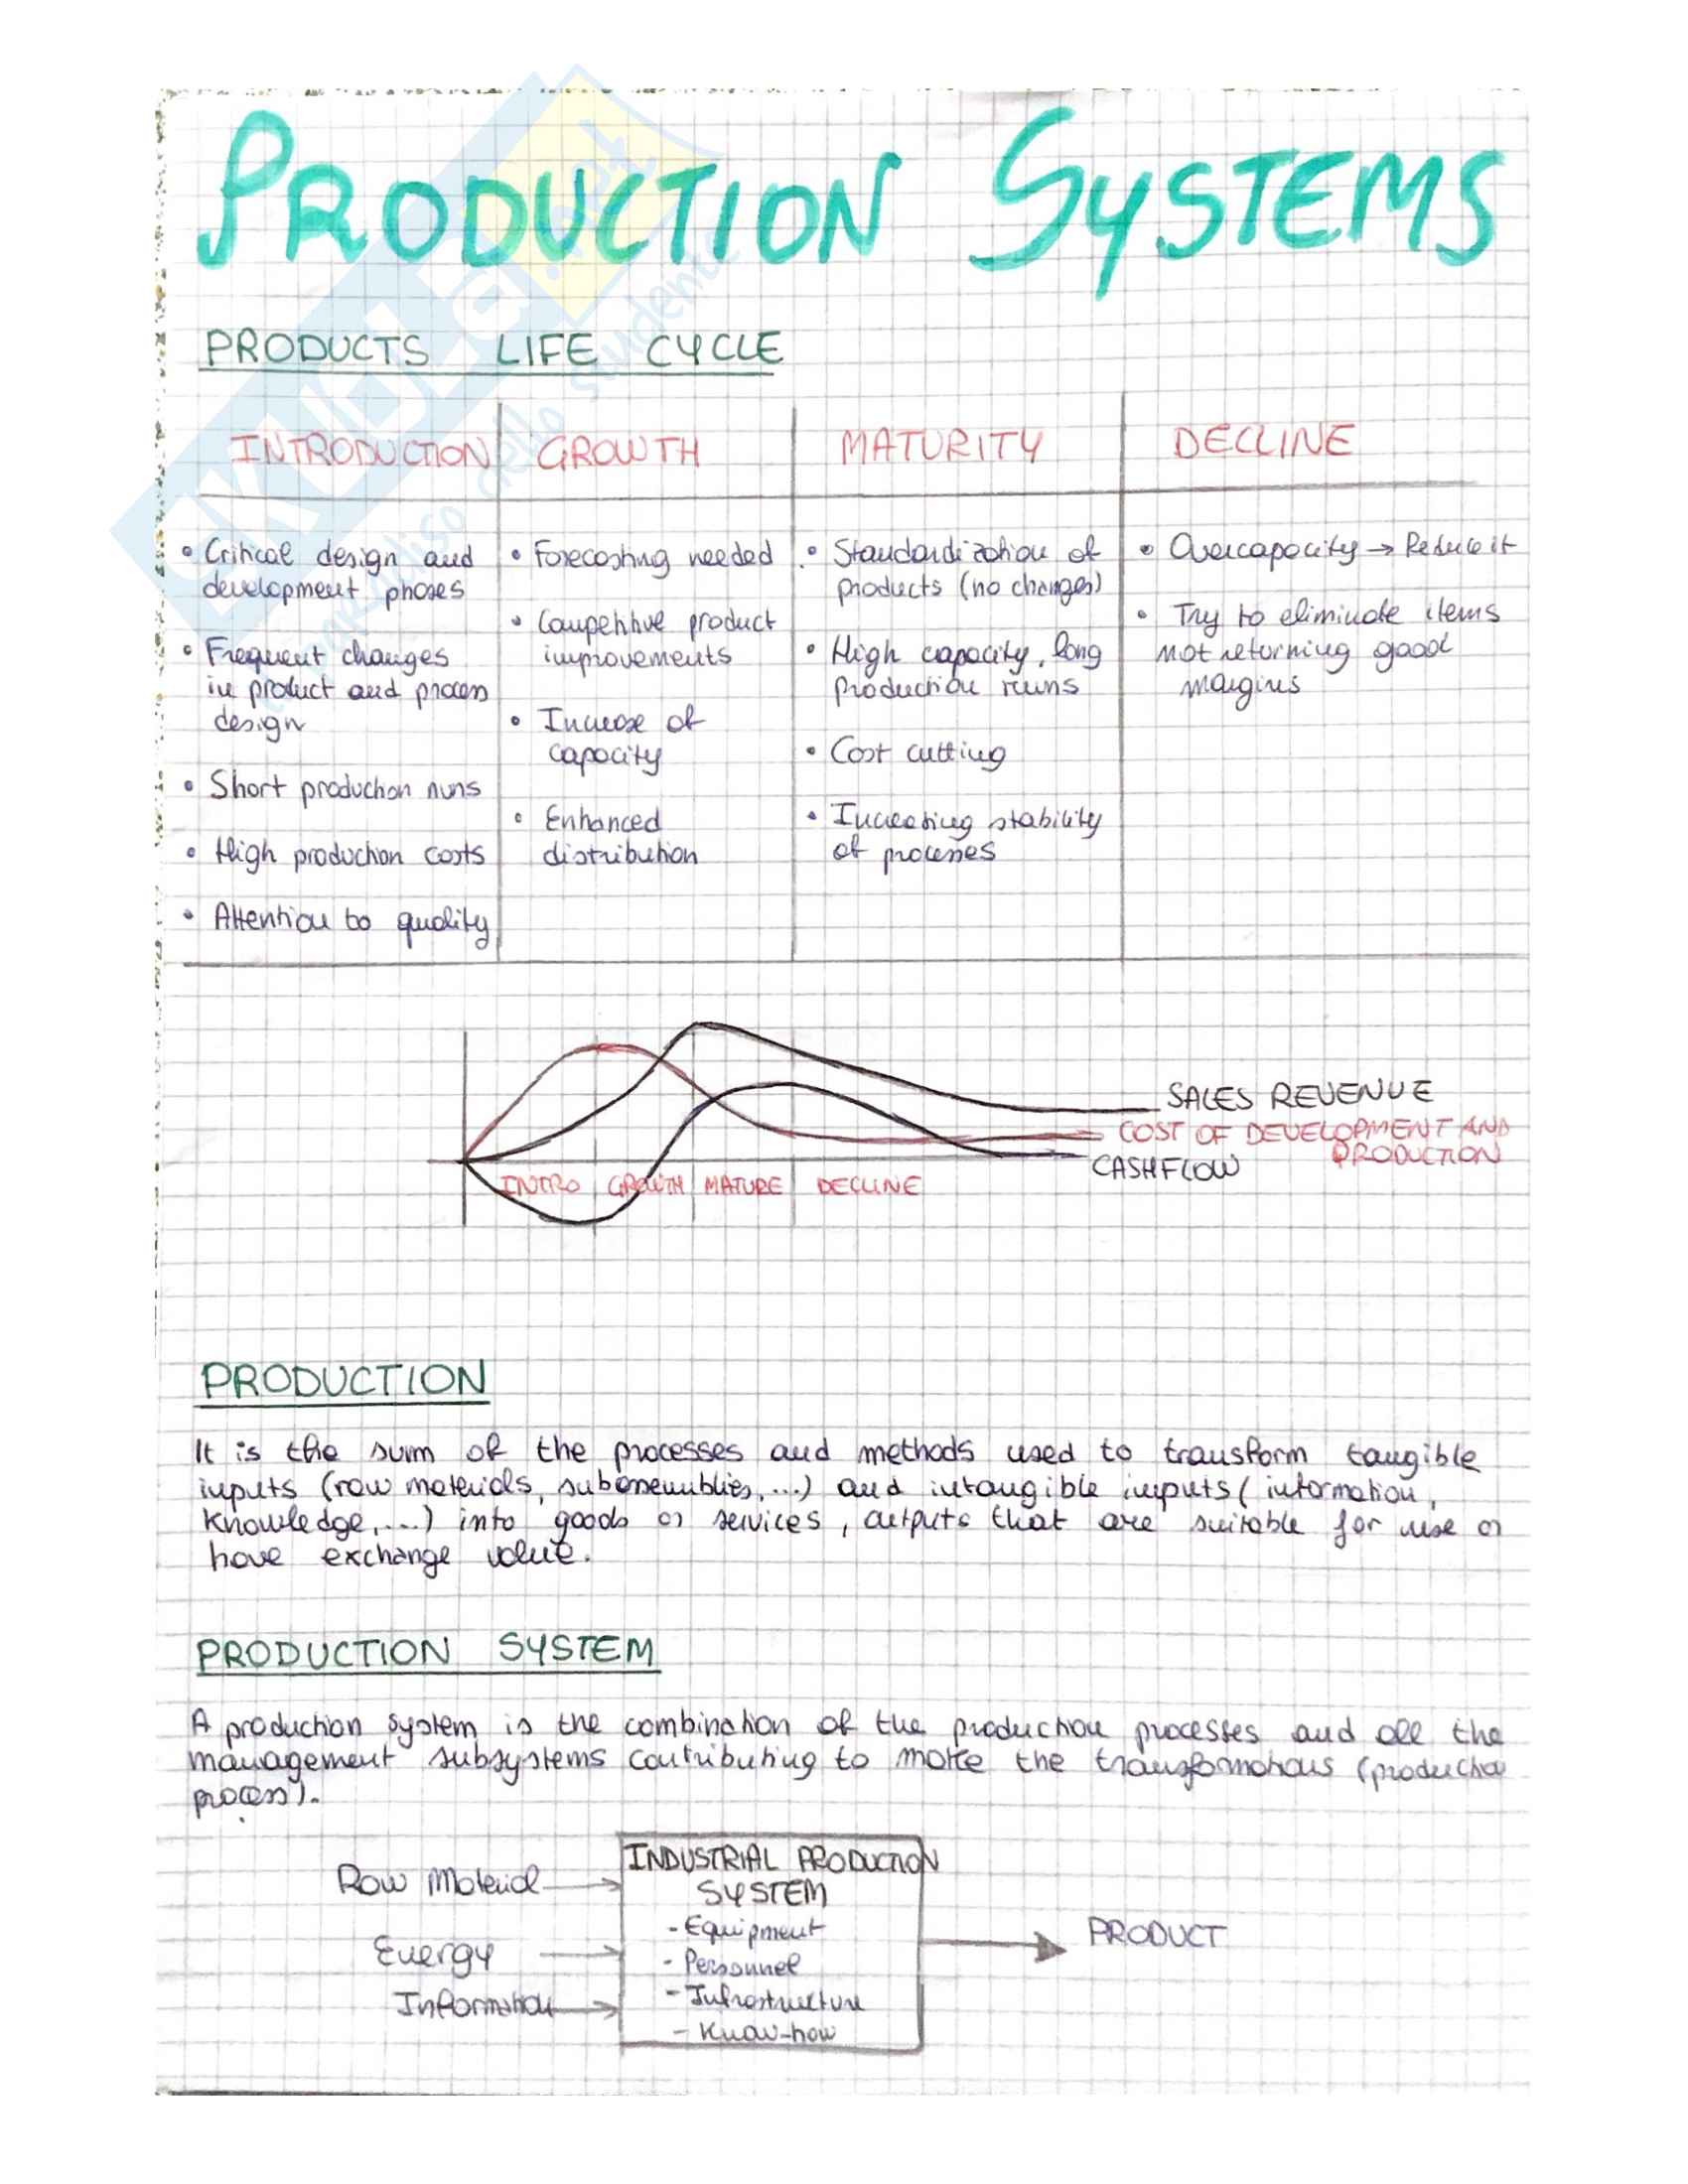 PRODUCTION SYSTEMS
PRODUCTS LIFE CYCLE
INTRODUCTION
• Critical design and
development phases
• Frequent changes
in product and process
design
• Short production runs
• High production costs
• Attention to quality
GROWTH
• Forecasting needed
• Competitive product
improvements
• Increase of
capacity
• Enhanced
distribution
MATURITY
• Standardization of
products (no changes)
• High capacity, long
production runs
• Cost cutting
• Increasing stability
of processes
DECLINE
• Overcapacity → Reduce it
• Try to eliminate items
not returning good
margins
SALES REVENUE
COST OF DEVELOPMENT AND
PRODUCTION
CASHFLOW
INTRO GROWTH MATURE DECLINE
PRODUCTION
It is the sum of the processes and methods used to transform tangible
inputs (raw materials, subassemblies,...) and intangible inputs (information,
knowledge,...) into goods or services, outputs that are suitable for use or
have exchange value.
PRODUCTION SYSTEM
A production system is the combination of the production processes and all the
management subsystems contributing to make the transformations (production
process).
Raw Material
Energy
Information
INDUSTRIAL PRODUCTION
SYSTEM
- Equipment
- Personnel
- Infrastructure
- Know-how
PRODUCT
SKUOLA.net
dello studente